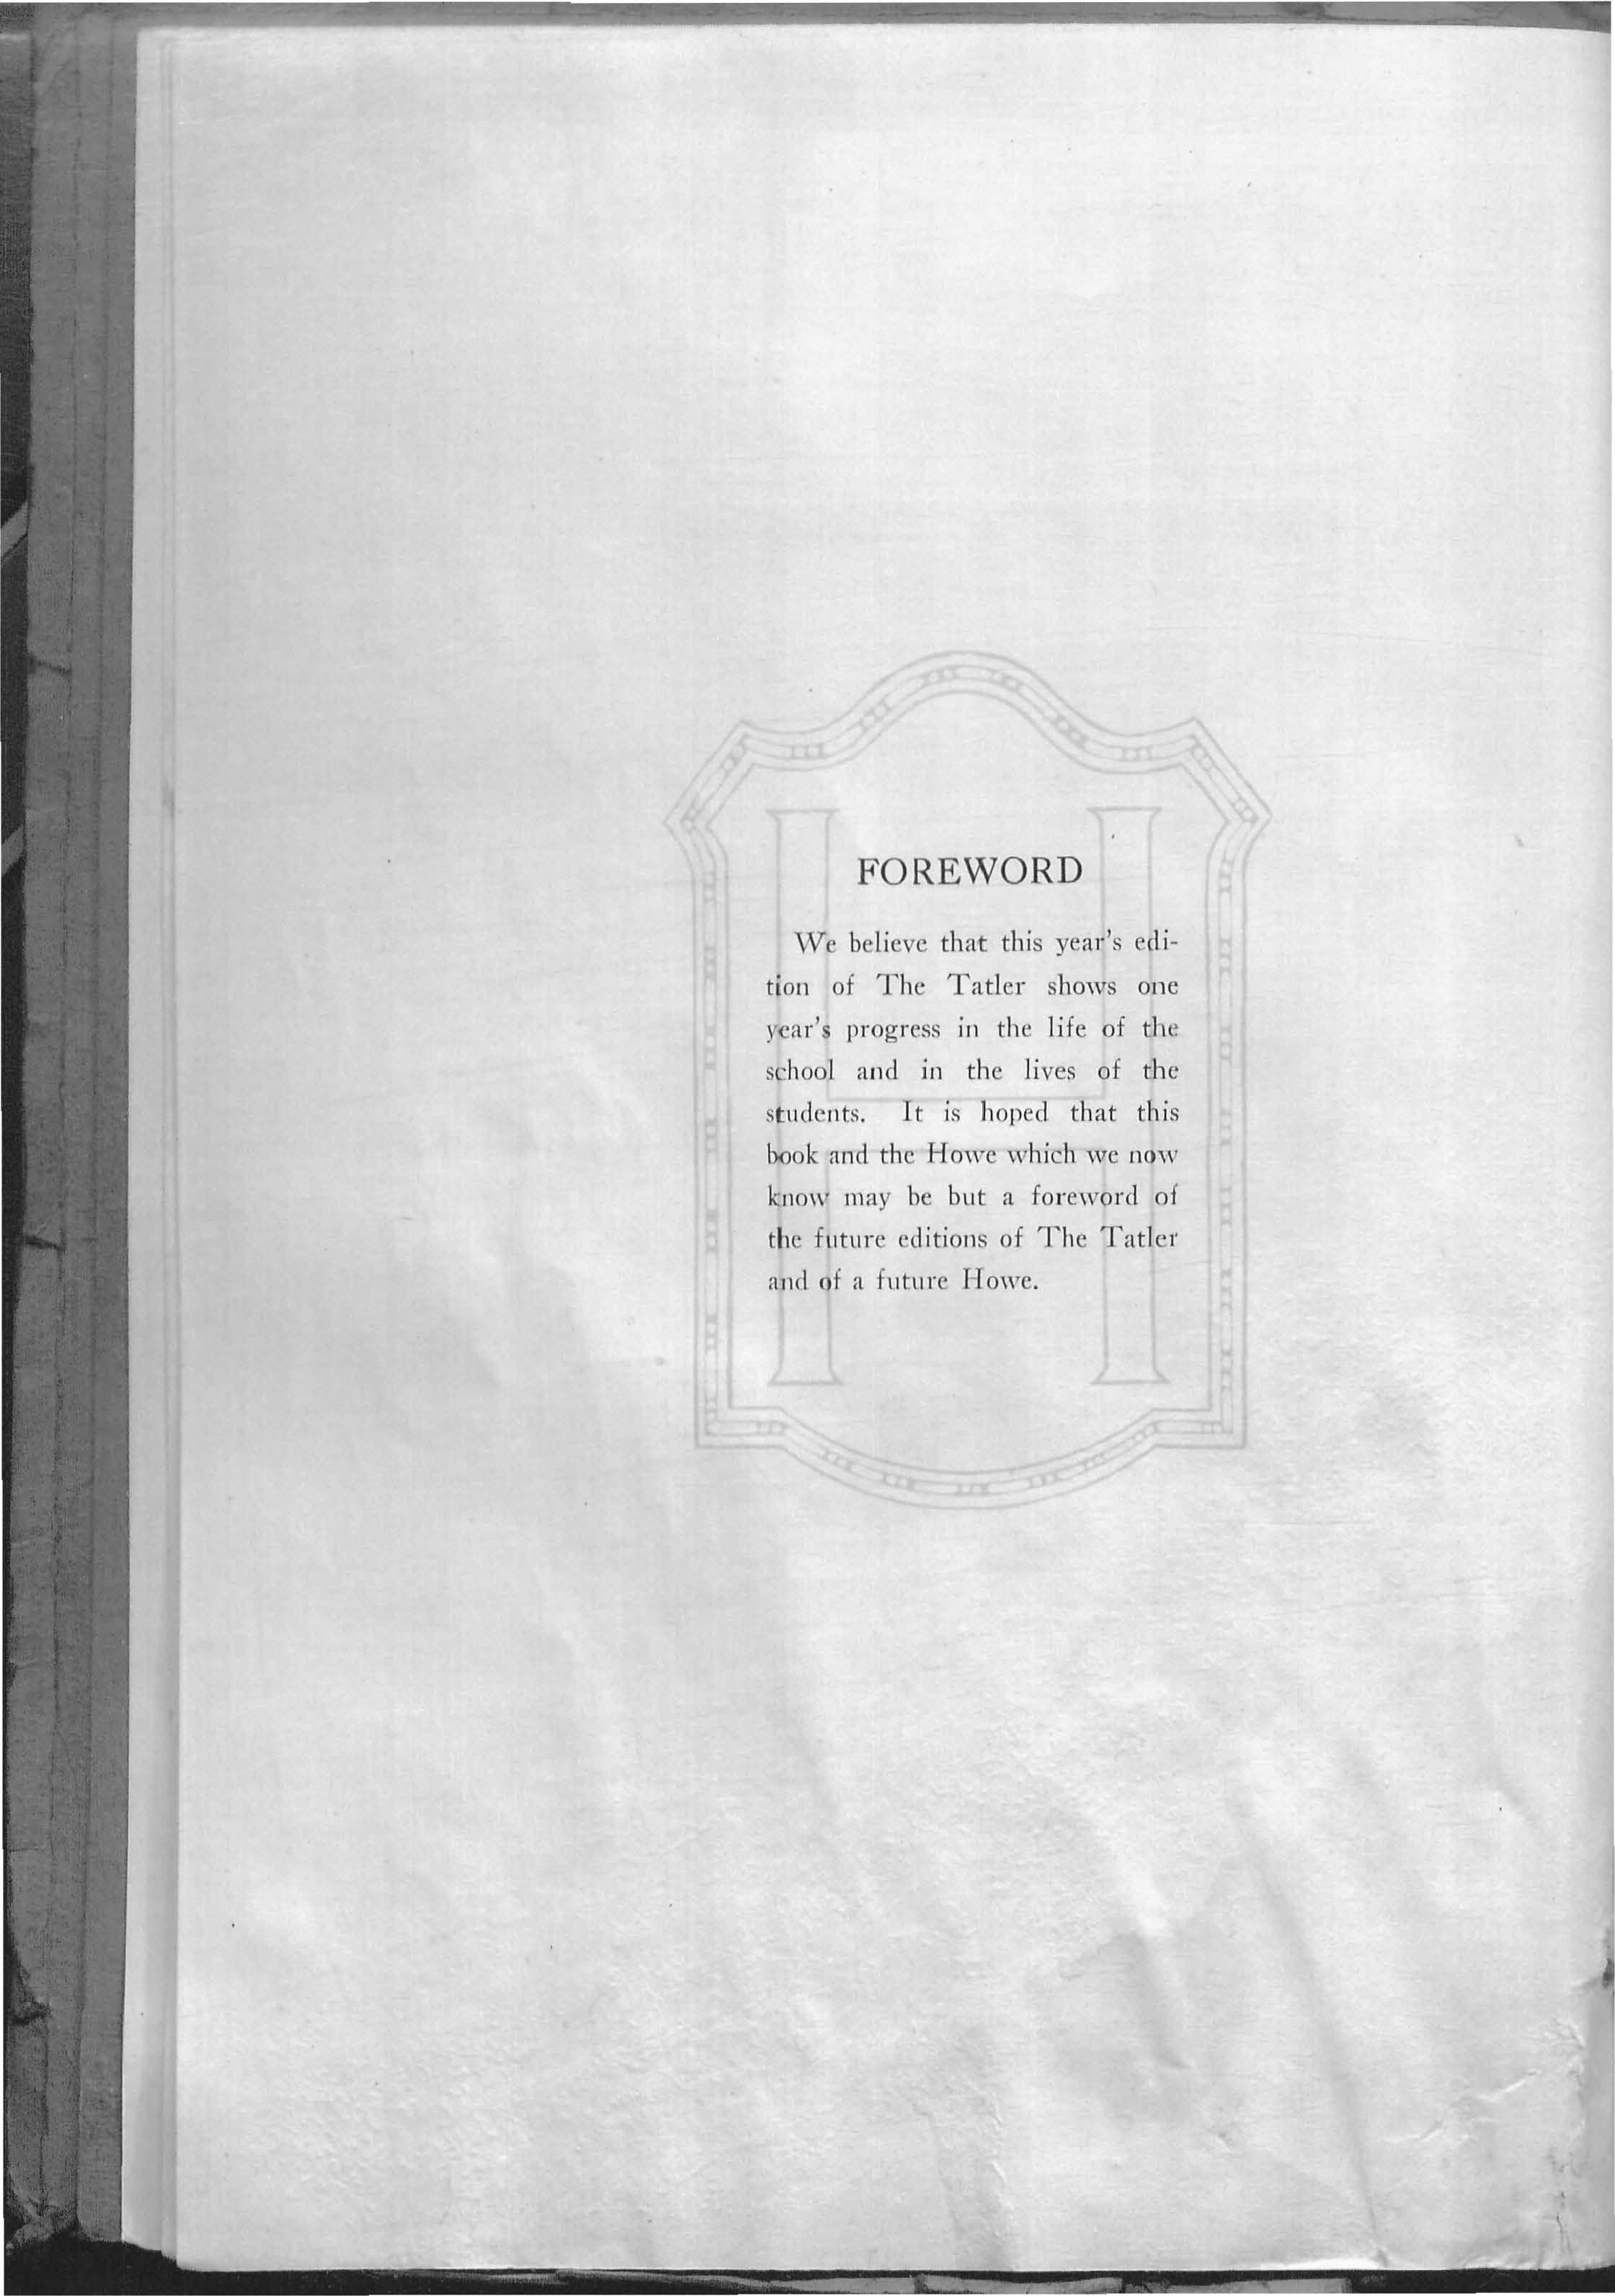 FOREWORD
We believe that this year's edi-
tion of The Tatler shows one
year's progress in the life of the
school and in the lives of the
students. It is hoped that this
book and the Howe which we now
know may be but a foreword of
the future editions of The Tatler
and of a future Howe.